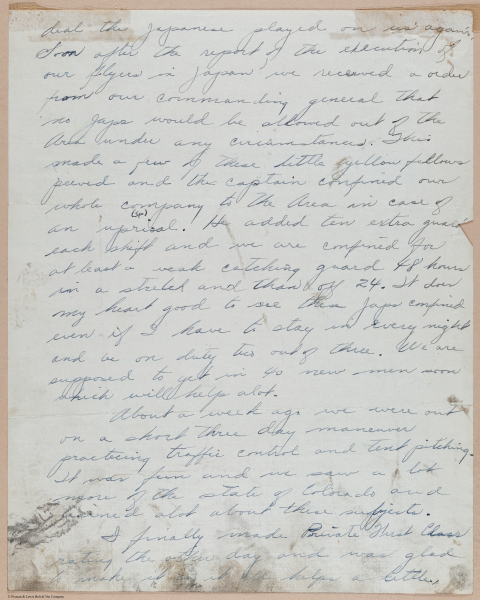 deal the Japanese played on us again.
Soon after the report of the execution of
our flyers in Japan, we received a order
from our commanding general that
no Japs would be allowed out of the
Area under any circumstances. This
made a few of these little yellow fellows
peeved and the captain confined our
whole company to the Area in case of
an uprisal. (sp) He added ten extra guard
each shift and we are confined for
at least a weak catching guard 48 hours
in a stretch and than off 24. It does
my heart good to see these Japs confined
even if I have to stay in every night
and be on duty two out of three. We are
supposed to get in 40 new men soon
which will help alot.
About a week ago we were out
on a short three day maneuver
practicing traffic control and tent pitching.
It was fun and we saw a lot
more of the state of Colorado and
learned alot about these subjects.
I finally made Private First Class
rating the other day and was glad
I make it as it helps a little,